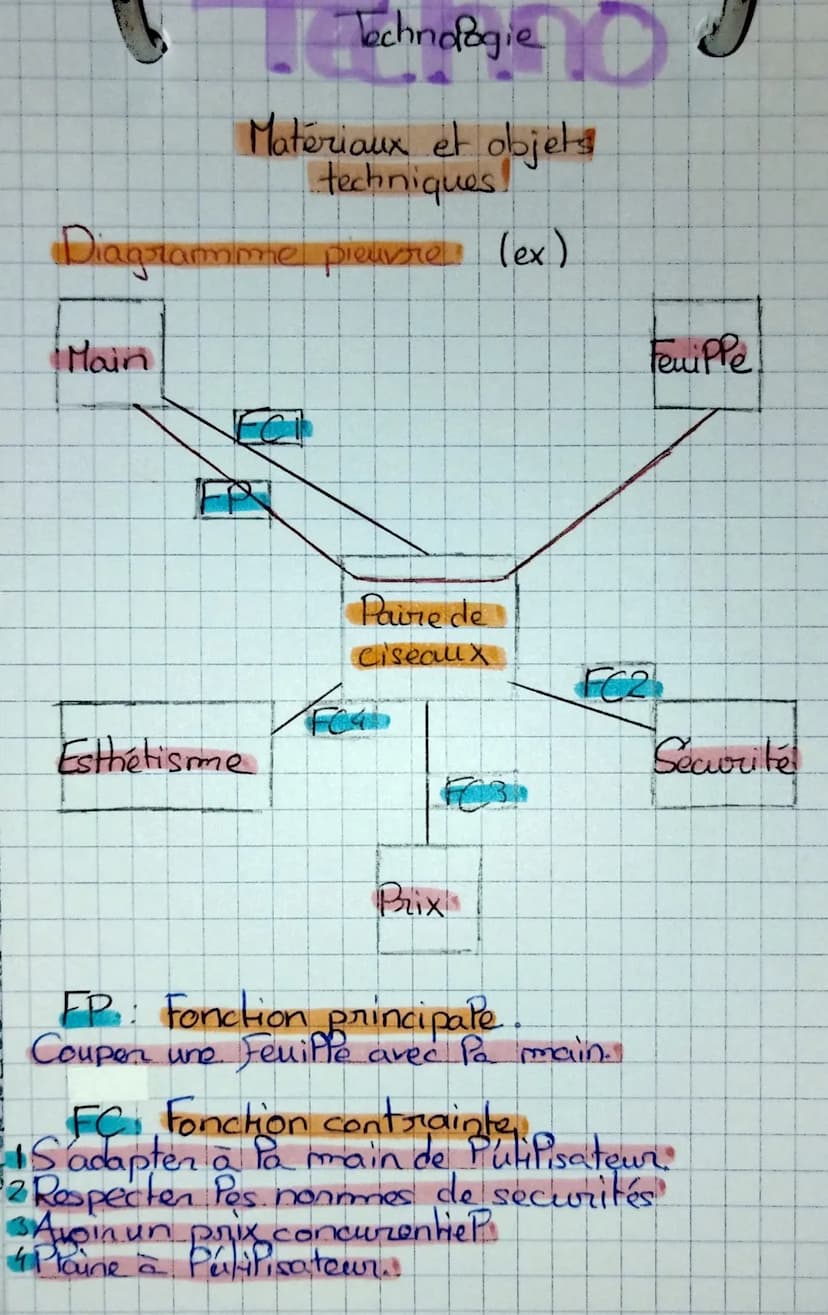 Techno
Technologie
Matériaux et objets
techniques
Diagramme pieuvre (ex)
Main
Feuille
FC1
FP
Paire de
ciseaux
FC2
FC4
Esthétisme
Sécurité
FC3
Prix
FP: Fonction principale.
Couper une feuille avec la main.
FC: Fonction contrainte
1 S'adapter à la main de l'utilisateur.
2 Respecter les normmes de sécurités
3 Avoir un prix concurentiel
4 Plaire à l'utilisateur.